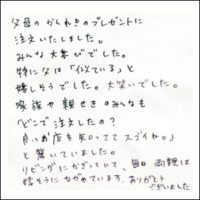 父母のかんれきのプレゼントに
注文いたしました。
みんな大喜びでした。
特に父は「似ている」と
嬉しそうでした。大笑いでした。
家族や親せきのみんなも
「どこで注文したの?
良いお店を知っててスゴイね。」
と驚いていました。
リビングにかざっていて、毎日 両親は
嬉そうにながめています。ありがとう
ございました